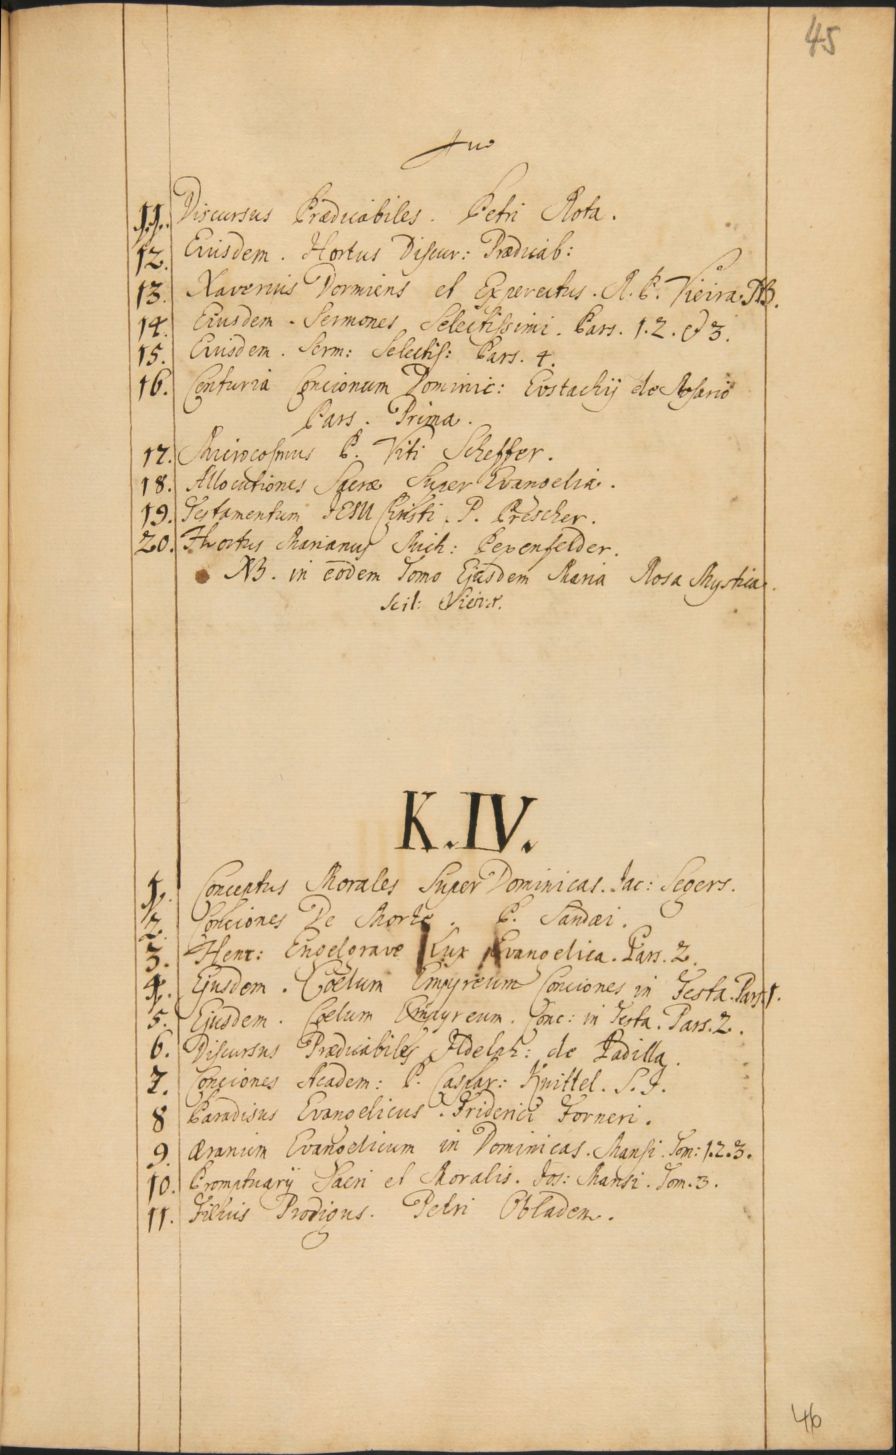 45
4to
11. Discursus Prædicabiles. Petri Rota.
12. Eiusdem. Hortus Discur: Prædicab:
13. Xaverius Dormiens et Experrectus. R. P. Vieira. NB.
14. Eiusdem. Sermones Selectissimi. Pars. 1. 2. & 3.
15. Eiusdem. Serm: Selectis: Pars. 4.
16. Centuria Concionum Dominic: Eustachij de Rosario
Pars. Prima.
17. Microcosmus P. Viti Scheffer.
18. Allocutiones Sacræ Super Evangelia.
19. Testamentum JESU Christi. P. Prescher.
20. Hortus Marianus Mich: Pexenfelder.
NB. in eodem Tomo Ejusdem Maria Rosa Mystica.
scil: Vieir.
K.IV.
1. Conceptus Morales Super Dominicas. Jac: Segers.
2. Conciones De Morte. P. Sandæi.
3. Henr: Engelgrave Lux Evangelica. Pars. 2.
4. Ejusdem. Cœlum Empyreum Conciones in Festa. Pars. 1.
5. Ejusdem. Cœlum Empyreum. Conc: in Festa. Pars. 2.
6. Discursus Prædicabiles Ildelph: de Padilla.
7. Conciones Academ: P. Caspar: Knittel. S. J.
8 Paradisus Evangelicus. Friderici Forneri.
9. Ærarium Evangelicum in Dominicas. Mansi. Tom: 1. 2. 3.
10. Promptuarij Sacri et Moralis. Jos: Mansi. Tom. 3.
11. Filius Prodigus. Petri Obladen.
46